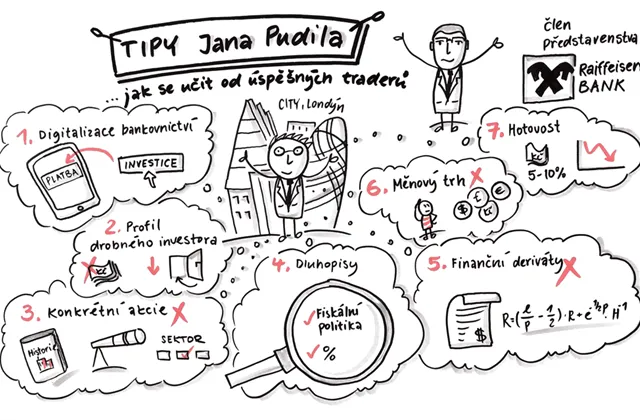 TIPY Jana Pudila
... jak se učit od úspěšných traderů
člen
představenstva
Raiffeisen
BANK
CITY, Londýn
1. Digitalizace bankovnictví
PLATBA
INVESTICE
2. Profil
drobného investora
Kč
3. Konkrétní akcie
Historie
SEKTOR
4. Dluhopisy
Fiskální
politika
%
5. Finanční deriváty
$
6. Měnový trh
$ £ € Kč
7. Hotovost
Kč
5-10%